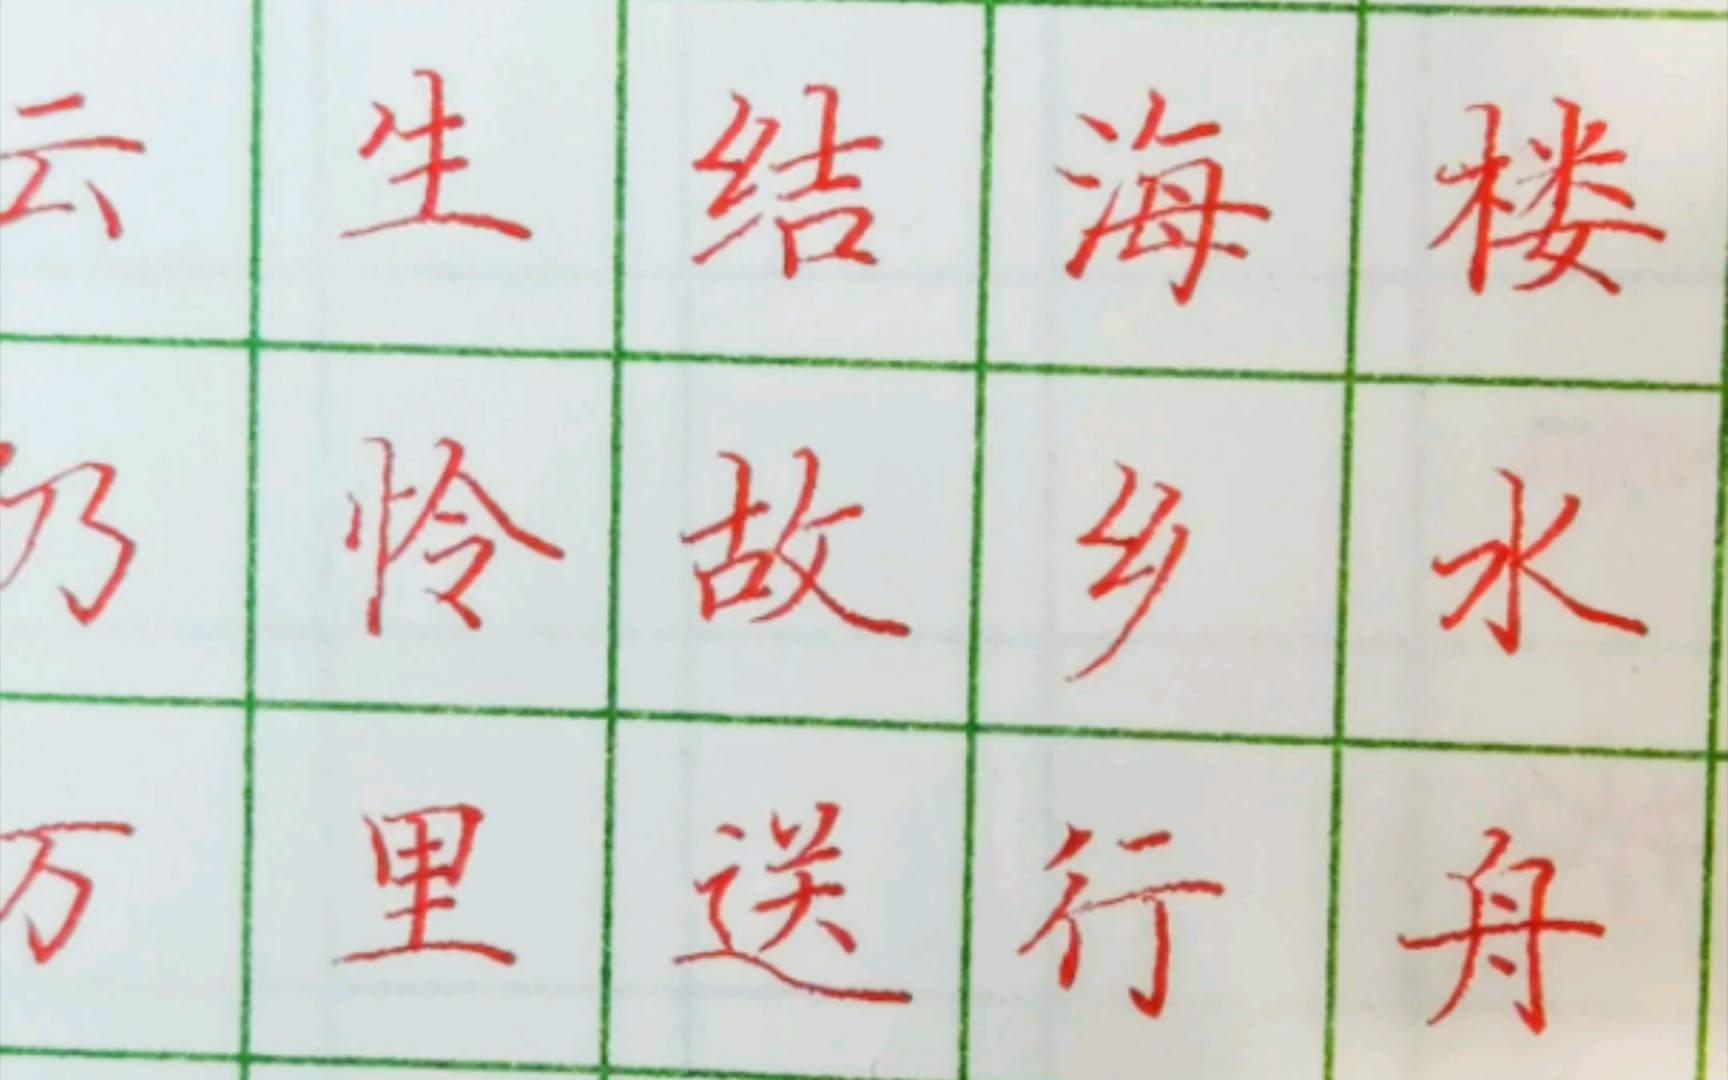 云生结海楼
仍怜故乡水
万里送行舟